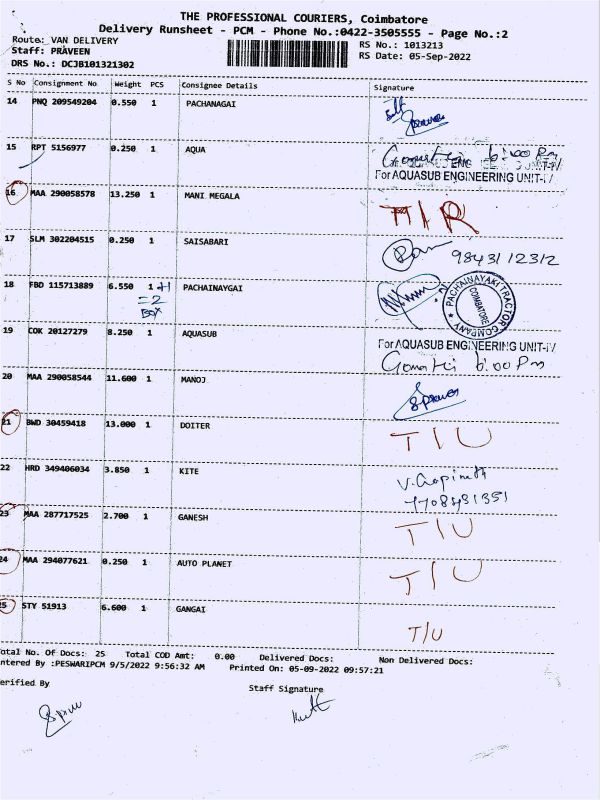 THE PROFESSIONAL COURIERS, Coimbatore
Delivery Runsheet - PCM - Phone No.:0422-3505555 - Page No.:2
Route: VAN DELIVERY
Staff: PRAVEEN
DRS No.: DCJB101321302
RS No.: 1013213
RS Date: 05-Sep-2022
S No Consignment No Weight PCS Consignee Details Signature
14 PNQ 209549204 0.550 1 PACHANAGAI
15 RPT 5156977 0.250 1 AQUA
6:00 Pm
For AQUASUB ENGINEERING UNIT-IV
16 MAA 290058578 13.250 1 MANI MEGALA
17 SLM 302204515 0.250 1 SAISABARI
9843112312
18 FBD 115713889 6.550 1 +1 PACHAINAYGAI
=2
Box
PACHAINAYAKI TRACTOR COMPANY
COIMBATORE
19 COK 20127279 8.250 1 AQUASUB
For AQUASUB ENGINEERING UNIT-IV
6:00 Pm
20 MAA 290058544 11.600 1 MANOJ
21 BWD 30459418 13.000 1 DOITER T/U
22 HRD 349406034 3.850 1 KITE
V. Gopinath
7708431351
23 MAA 287717525 2.700 1 GANESH T/U
24 MAA 294077621 0.250 1 AUTO PLANET T/U
25 STY 51913 6.600 1 GANGAI T/U
otal No. Of Docs: 25 Total COD Amt: 0.00 Delivered Docs: Non Delivered Docs:
ntered By :PESWARIPCM 9/5/2022 9:56:32 AM Printed On: 05-09-2022 09:57:21
erified By Staff Signature